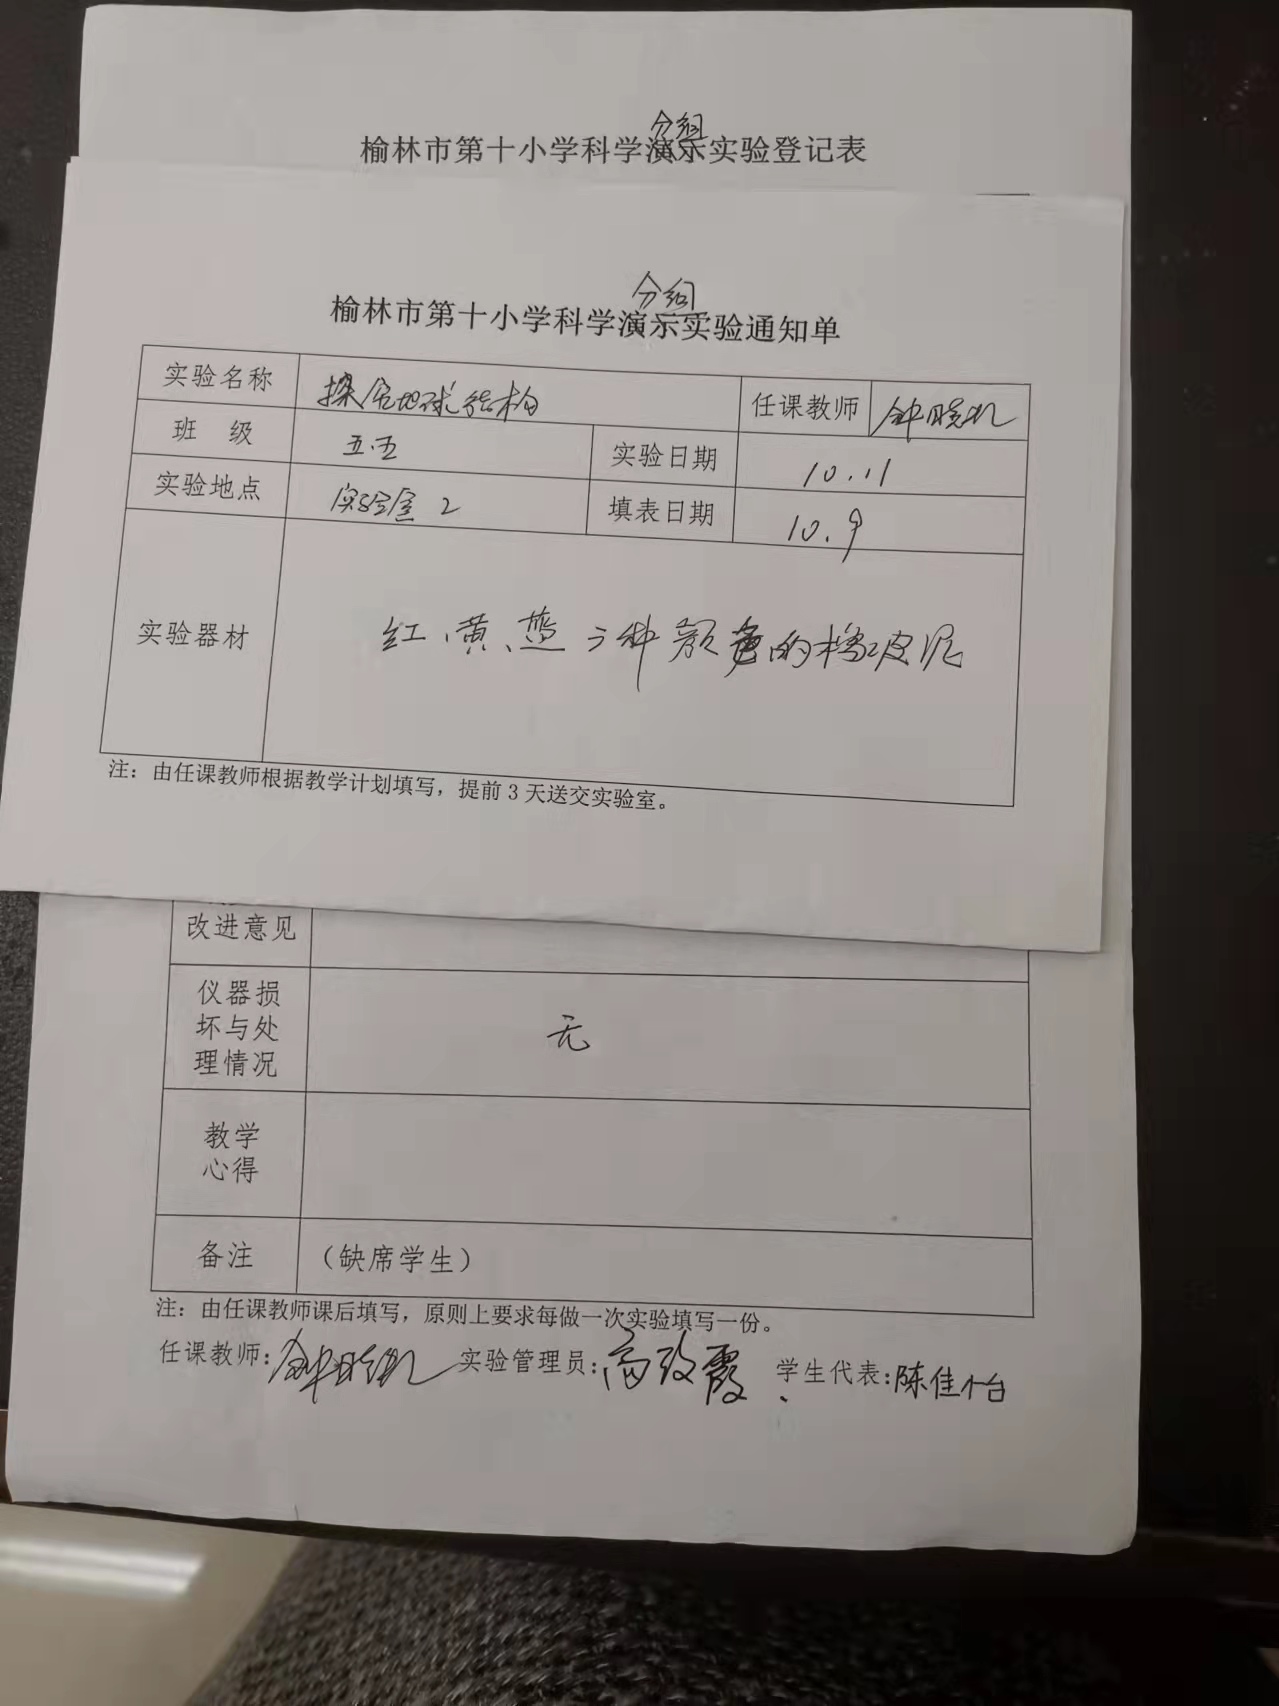 分组
榆林市第十小学科学演示实验登记表
分组
榆林市第十小学科学演示实验通知单
实验名称 探究地球结构 任课教师 钟晓
班 级 五.五 实验日期 10.11
实验地点 实验室 2 填表日期 10.9
实验器材 红、黄、蓝三种颜色的橡皮泥
注：由任课教师根据教学计划填写，提前 3 天送交实验室。
改进意见
仪器损
坏与处 无
理情况
教学
心得
备注 （缺席学生）
注：由任课教师课后填写，原则上要求每做一次实验填写一份。
任课教师：钟晓 实验管理员：高改霞 学生代表：陈佳怡